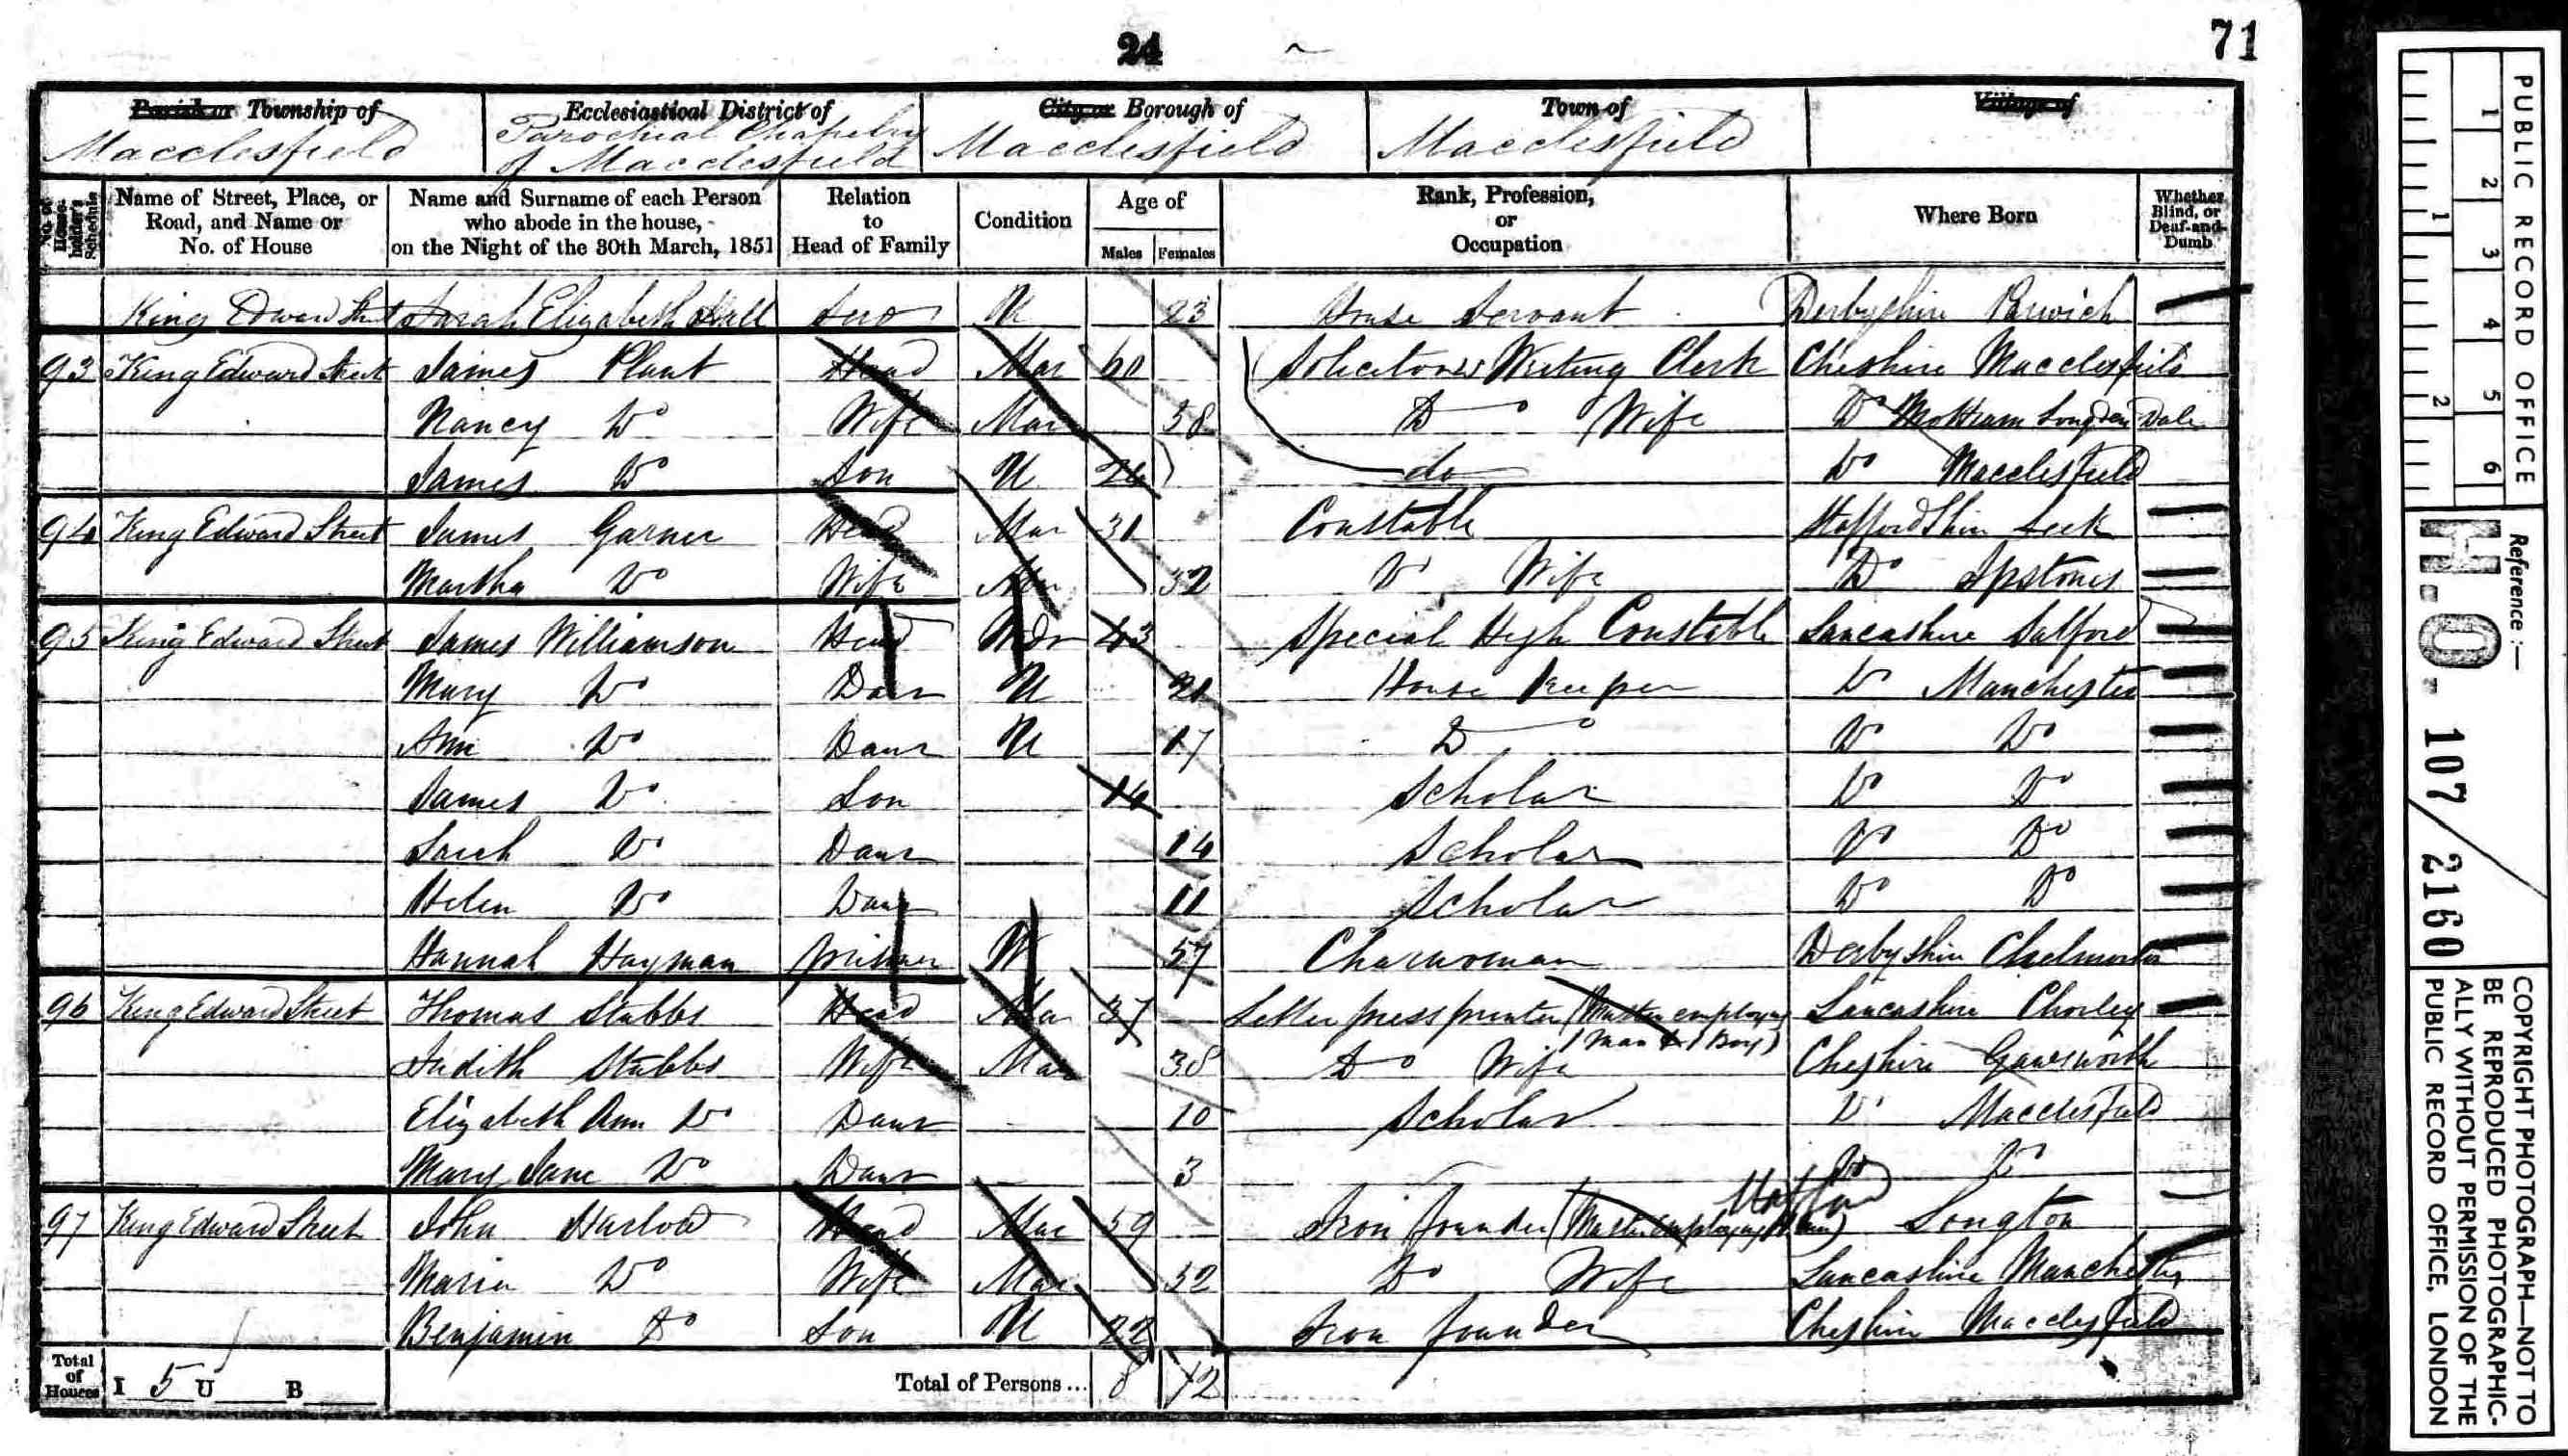 24
71
Parish or Township of
Macclesfield
Ecclesiastical District of
Parochial Chapelry
of Macclesfield
City or Borough of
Macclesfield
Town of
Macclesfield
Village of
No. of House-holder's Schedule
Name of Street, Place, or Road, and Name or No. of House
Name and Surname of each Person who abode in the house, on the Night of the 30th March, 1851
Relation to Head of Family
Condition
Age of
Males Females
Rank, Profession, or Occupation
Where Born
Whether Blind, or Deaf-and-Dumb
King Edward Street Sarah Elizabeth Hall Serv U 23 House Servant Derbyshire Parwich
93 King Edward Street James Plant Head Mar 60 Solicitors Writing Clerk Cheshire Macclesfield
Nancy Do Wife Mar 58 Do Wife Do Mottram Longden Dale
James Do Son U 24 do Do Macclesfield
94 King Edward Street James Garner Head Mar 31 Constable Staffordshire Leek
Martha Do Wife Mar 32 Do Wife Do Ipstones
95 King Edward Street James Williamson Head Wdr 43 Special High Constable Lancashire Salford
Mary Do Daur U 21 House Keeper Do Manchester
Ann Do Daur U 17 Do Do Do
James Do Son 16 Scholar Do Do
Sarah Do Daur 14 Scholar Do Do
Helen Do Daur 11 Scholar Do Do
Hannah Hayman prisoner W 57 Charwoman Derbyshire Chelmorton
96 King Edward Street Thomas Stubbs Head Mar 37 Letter press printer (Master employing 1 Man & 1 Boy) Lancashire Chorley
Judith Stubbs Wife Mar 38 Do Wife Cheshire Gawsworth
Elizabeth Ann Do Daur 10 Scholar Do Macclesfield
Mary Jane Do Daur 3 Do Do
97 King Edward Street John Harlow Head Mar 59 Iron founder (Master employing Men) Stafford Longton
Maria Do Wife Mar 52 Do Wife Lancashire Manchester
Benjamin Do Son U 22 Iron founder Cheshire Macclesfield
Total of Houses I 5 U B Total of Persons... 8 12
PUBLIC RECORD OFFICE
1 2 3 4 5 6
1 2
Reference:—
H.O. 107/2160
COPYRIGHT PHOTOGRAPH—NOT TO
BE REPRODUCED PHOTOGRAPHIC-
ALLY WITHOUT PERMISSION OF THE
PUBLIC RECORD OFFICE, LONDON